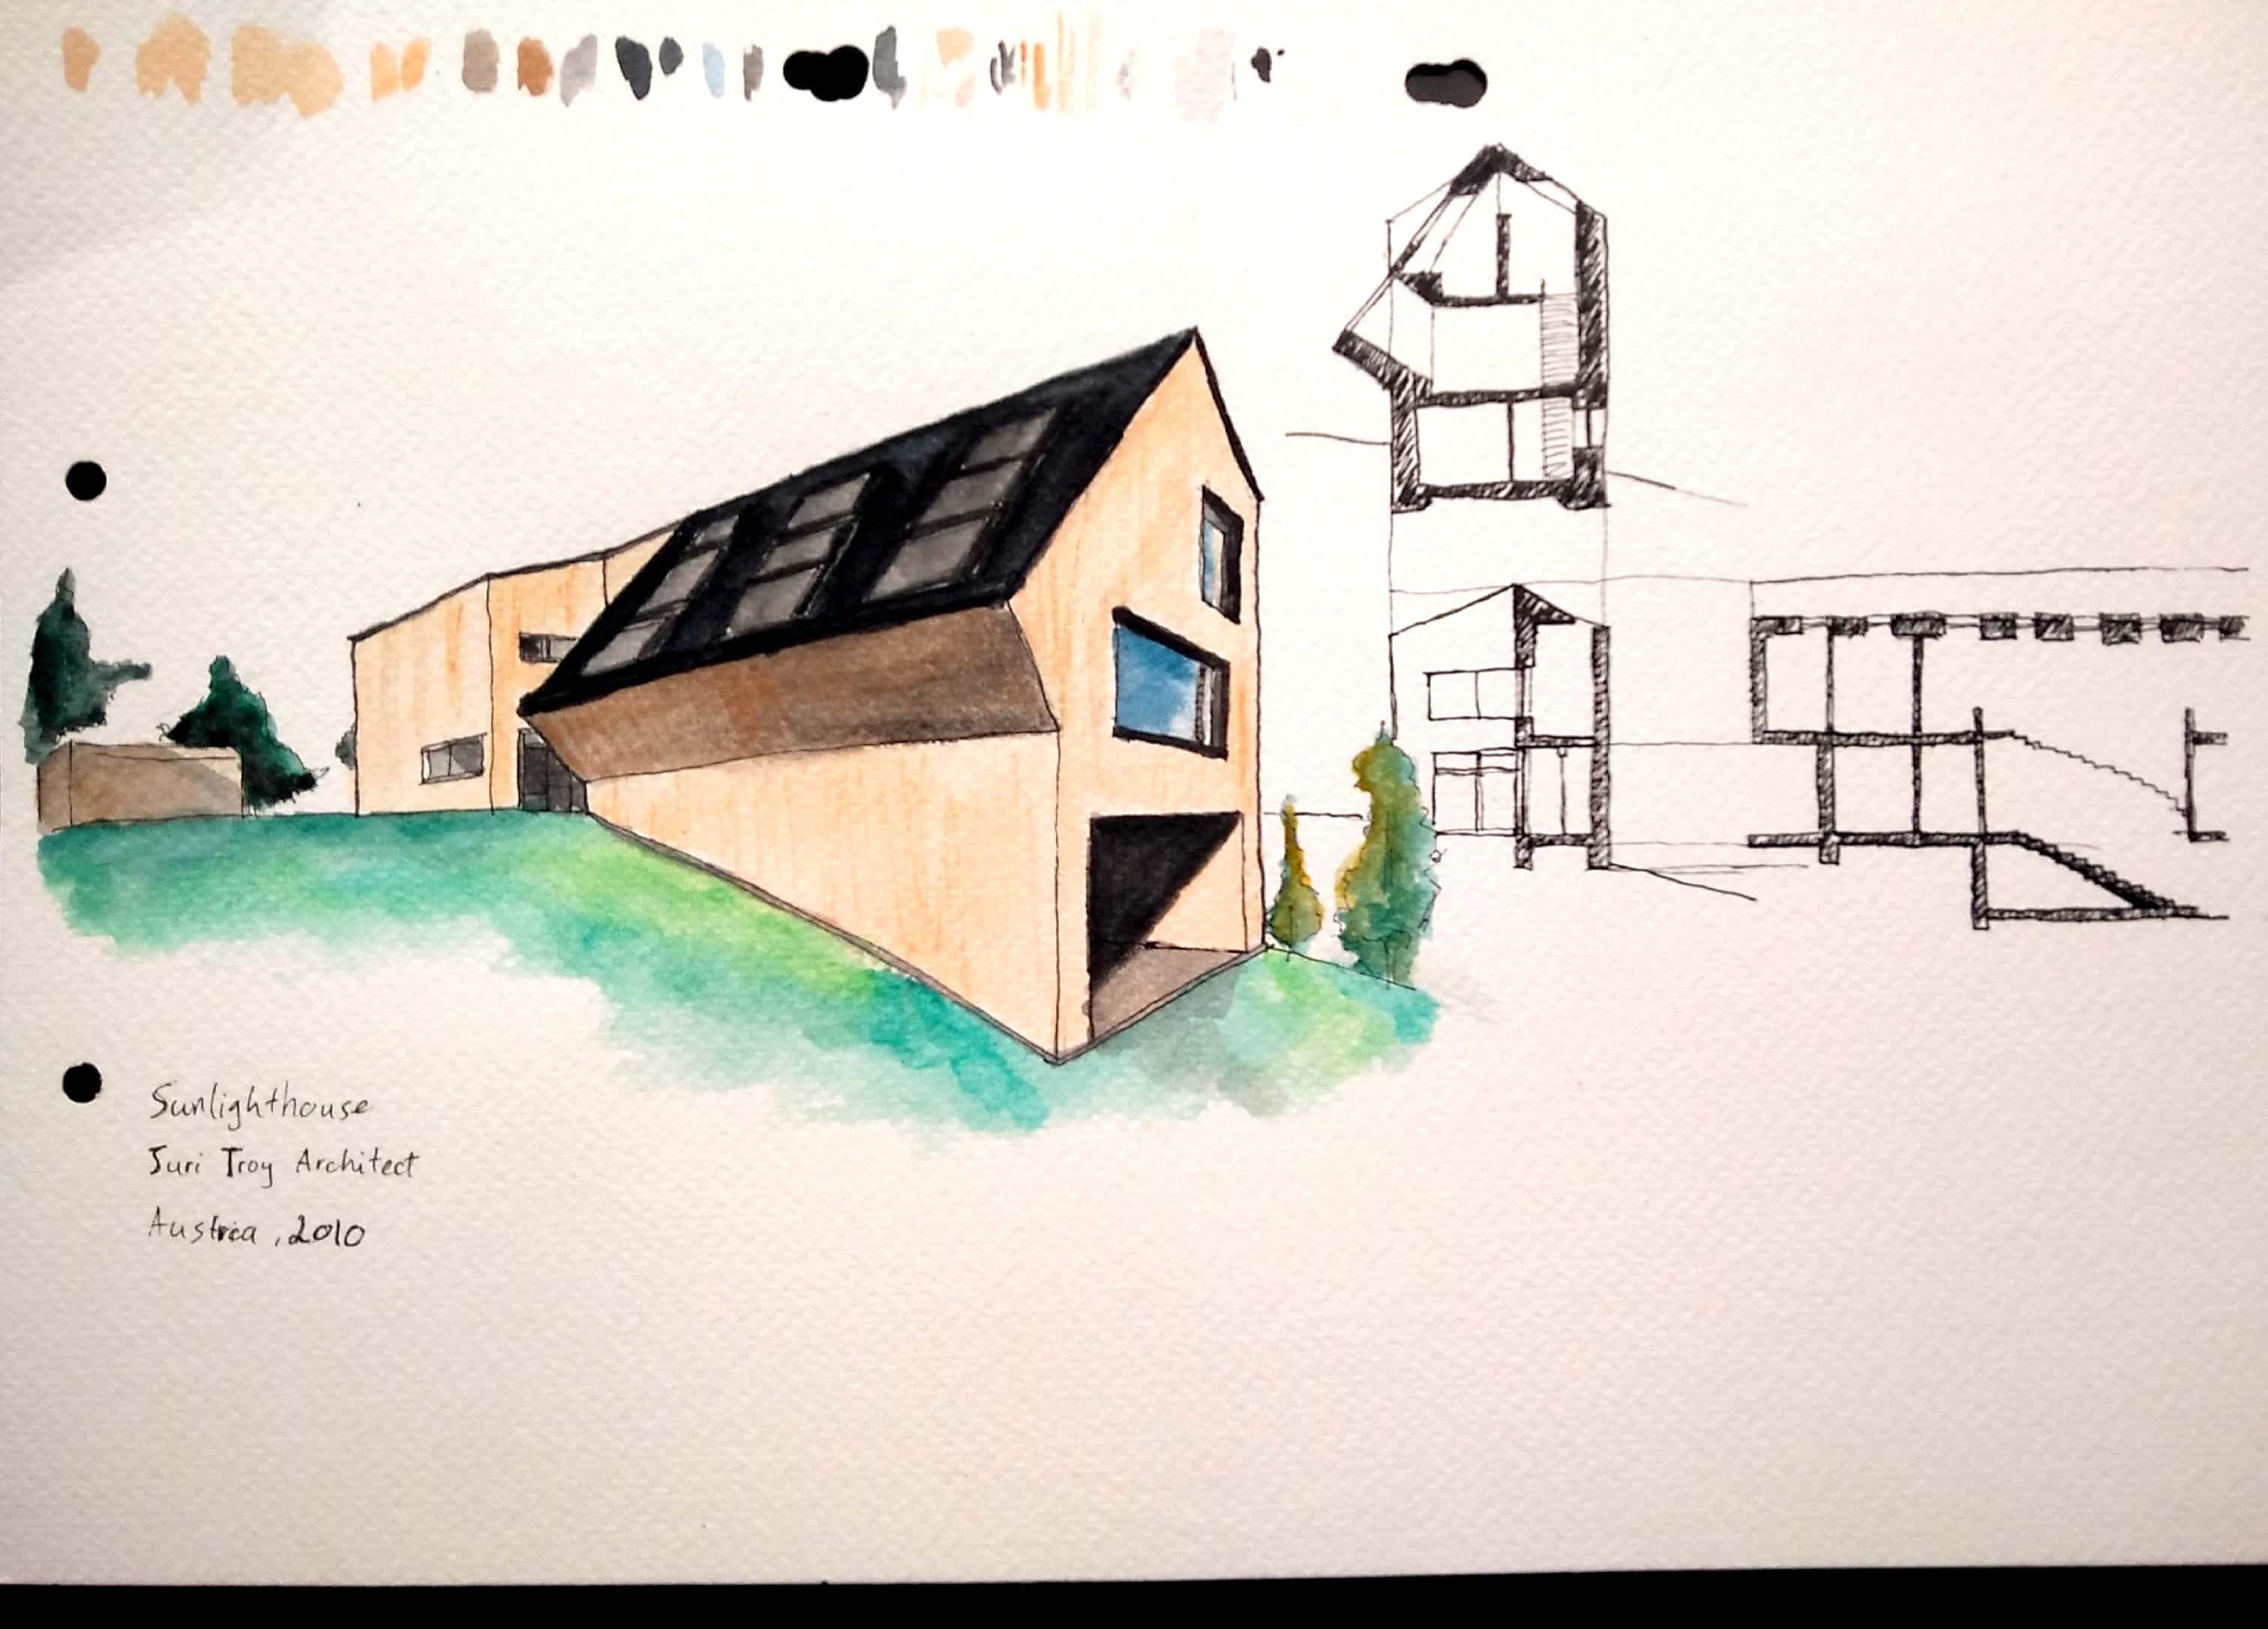 Sunlighthouse
Juri Troy Architect
Austria, 2010